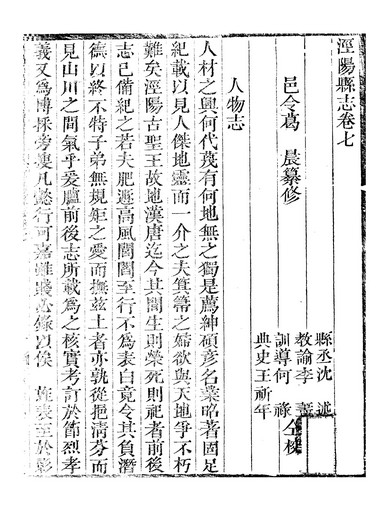 涇陽縣志卷七
邑令葛 晨纂修
縣丞沈 述
教諭李
訓導何 祿
典史王祈年
仝校
人物志
人材之興何代蔑有何地無之獨是薦紳碩彥名業昭著國足
紀載以見人傑地靈而一介之夫箕箒之婦欲與天地爭不朽
難矣涇陽古聖王故地漢唐迄今其間生則榮死則祀者前後
志已備紀之若夫肥遯高風閨閤至行不爲表白竟令其負潛
德以終不特子弟無規矩之愛而撫茲土者亦孰從挹淸芬而
見山川之間氣乎爰臚前後志所載爲之核實考訂於節烈孝
義又爲博採旁蒐凡懿行可嘉雖賤必錄以俟 旌表至於彰